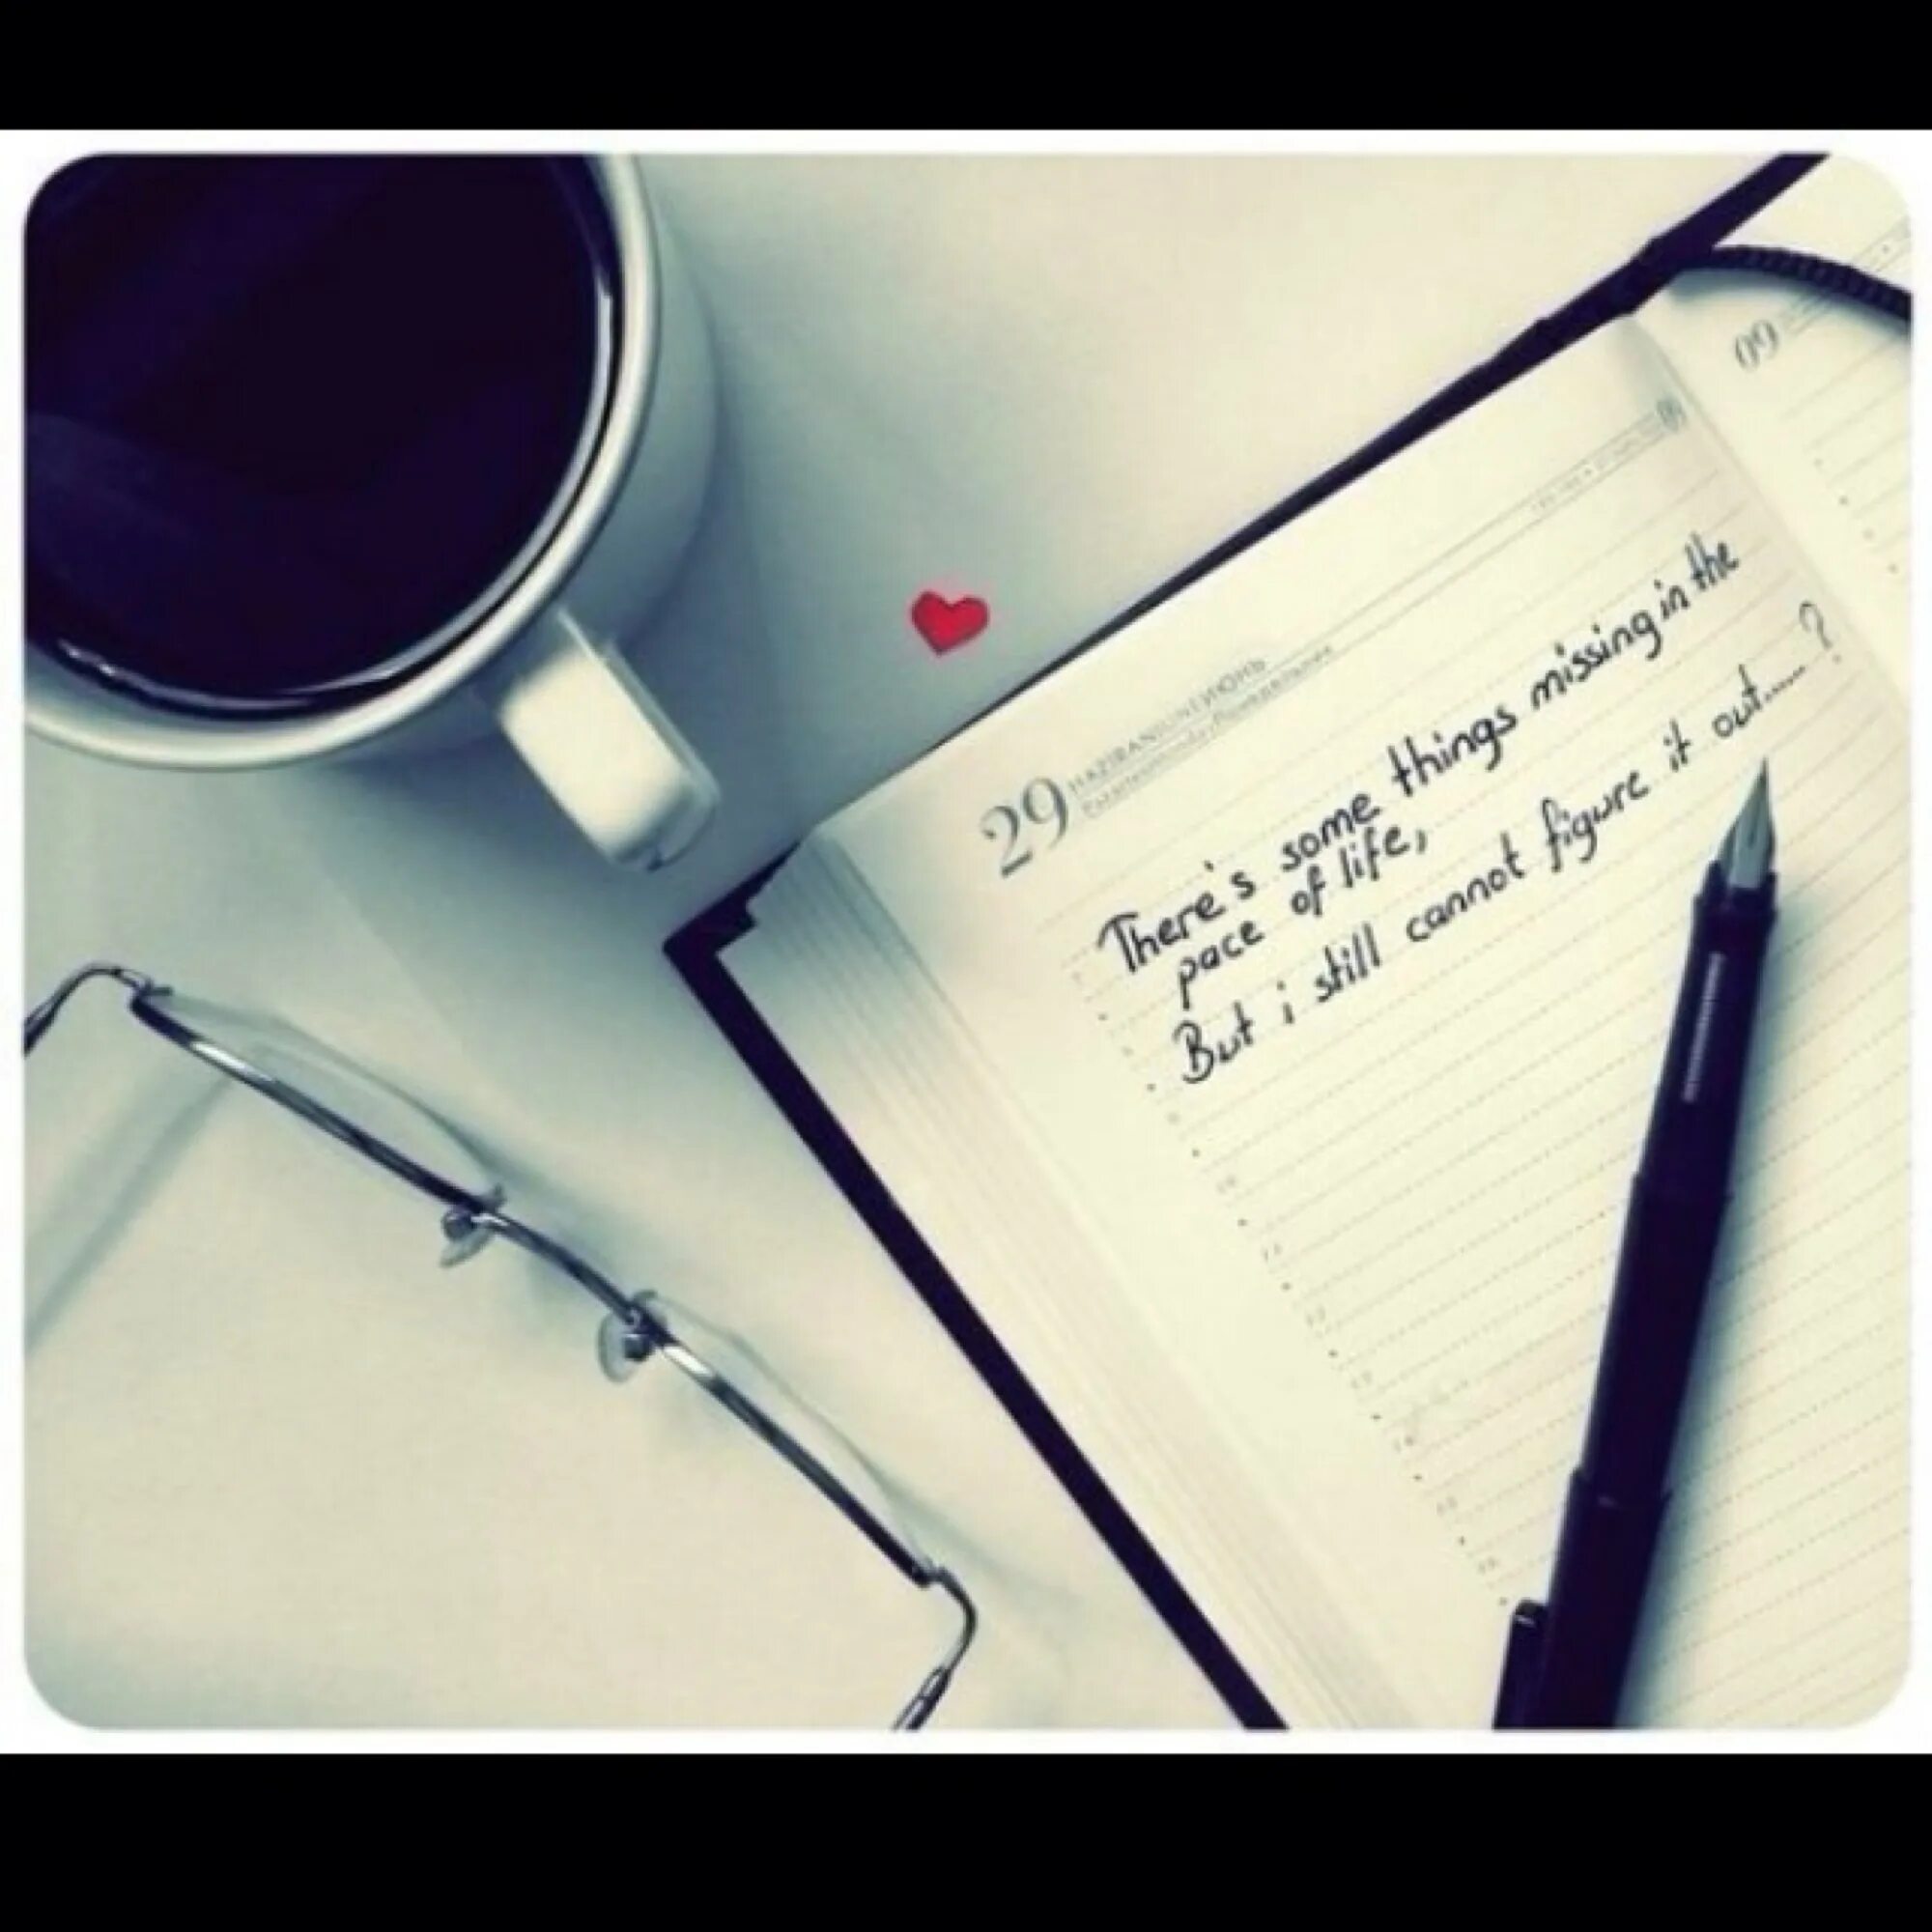 29
HAZİRAN/JUNE/ИЮНЬ
09
There's some things missing in the
pace of life,
But i still cannot figure it out......?